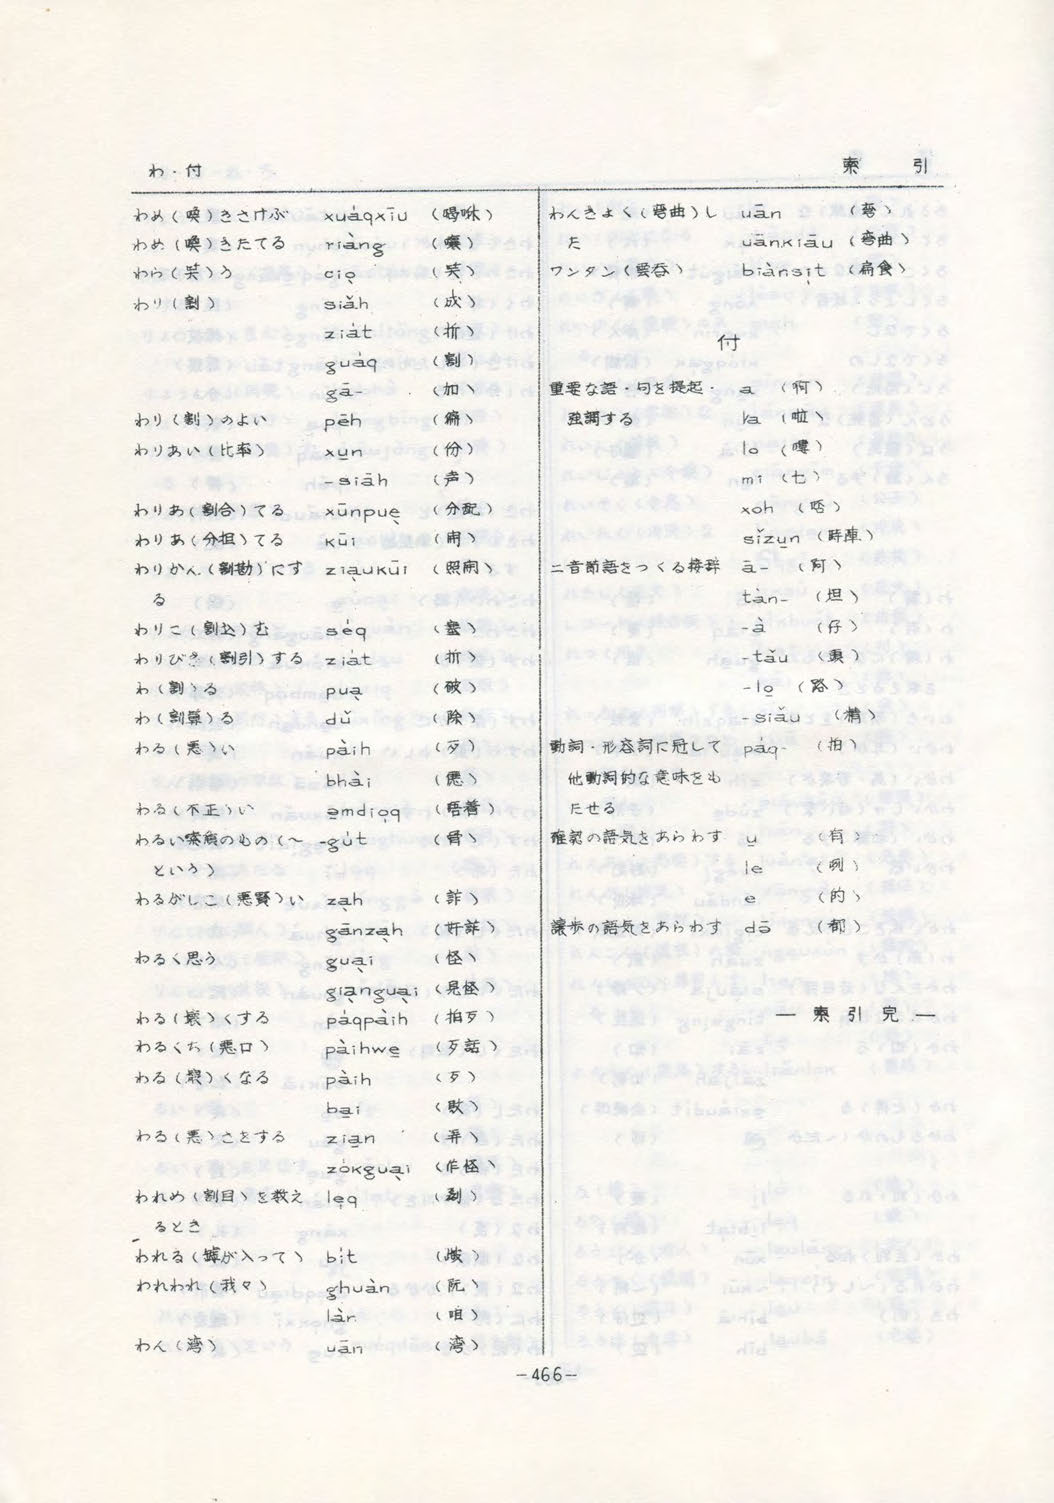 わ・付
索 引
わめ(喚)きさけぶ xuáqxīu (喝咻)
わめ(喚)きたてる riàng (嚷)
わら(笑)う ciọ (笑)
わり(割) siǎh (成)
ziát (折)
guáq (割)
gā- (加)
わり(割)のよい pēh (癖)
わりあい(比率) xu̠n (份)
-siāh (声)
わりあ(割合)てる xūnpue̠ (分配)
わりあ(分担)てる kūi (開)
わりかん(割勘)にす ziạukūi (照開)
る
わりこ(割込)む séq
わりびき(割引)する ziát (折)
わ(割)る puạ (破)
わ(割算)る dǔ (除)
わる(悪)い pàih (歹)
bhài
わる(不正)い e̠mdiọq (唔着)
わるい(〜 -gút (骨)
という)
わるがしこ(悪賢)い zạh (詐)
gānzạh (奸詐)
わるく思う guại (怪)
giạnguại (見怪)
わる(壊)くする páqpàih (拍歹)
わるくち(悪口) pàihwe̠ (歹話)
わる(壊)くなる pàih (歹)
ba̠i (敗)
わる(悪)さをする zia̠n
zókguại (作怪)
われめ(割目)を数え lẹq
るとき
われる(罅が入って) bịt
われわれ(我々) ghuàn (阮)
làn (咱)
わん(湾) uān (湾)
わんきょく(彎曲)し uān (彎)
た uānkiāu (彎曲)
ワンタン(雲呑) biànsịt (扁食)
付
重要な語・句を提起・ a (啊)
強調する la (啦)
lo (嘍)
mī (乜)
xoh
sǐzu̠n (時陣)
二音節語をつくる接辞 ā- (阿)
tàn- (坦)
-à (仔)
-tǎu (頭)
-lo̠ (路)
-siǎu (精)
動詞・形容詞に冠して páq- (拍)
他動詞的な意味をも
たせる
確認の語気をあらわす u̠ (有)
le (咧)
e (的)
譲歩の語気をあらわす dō (都)
— 索 引 完 —
-466-